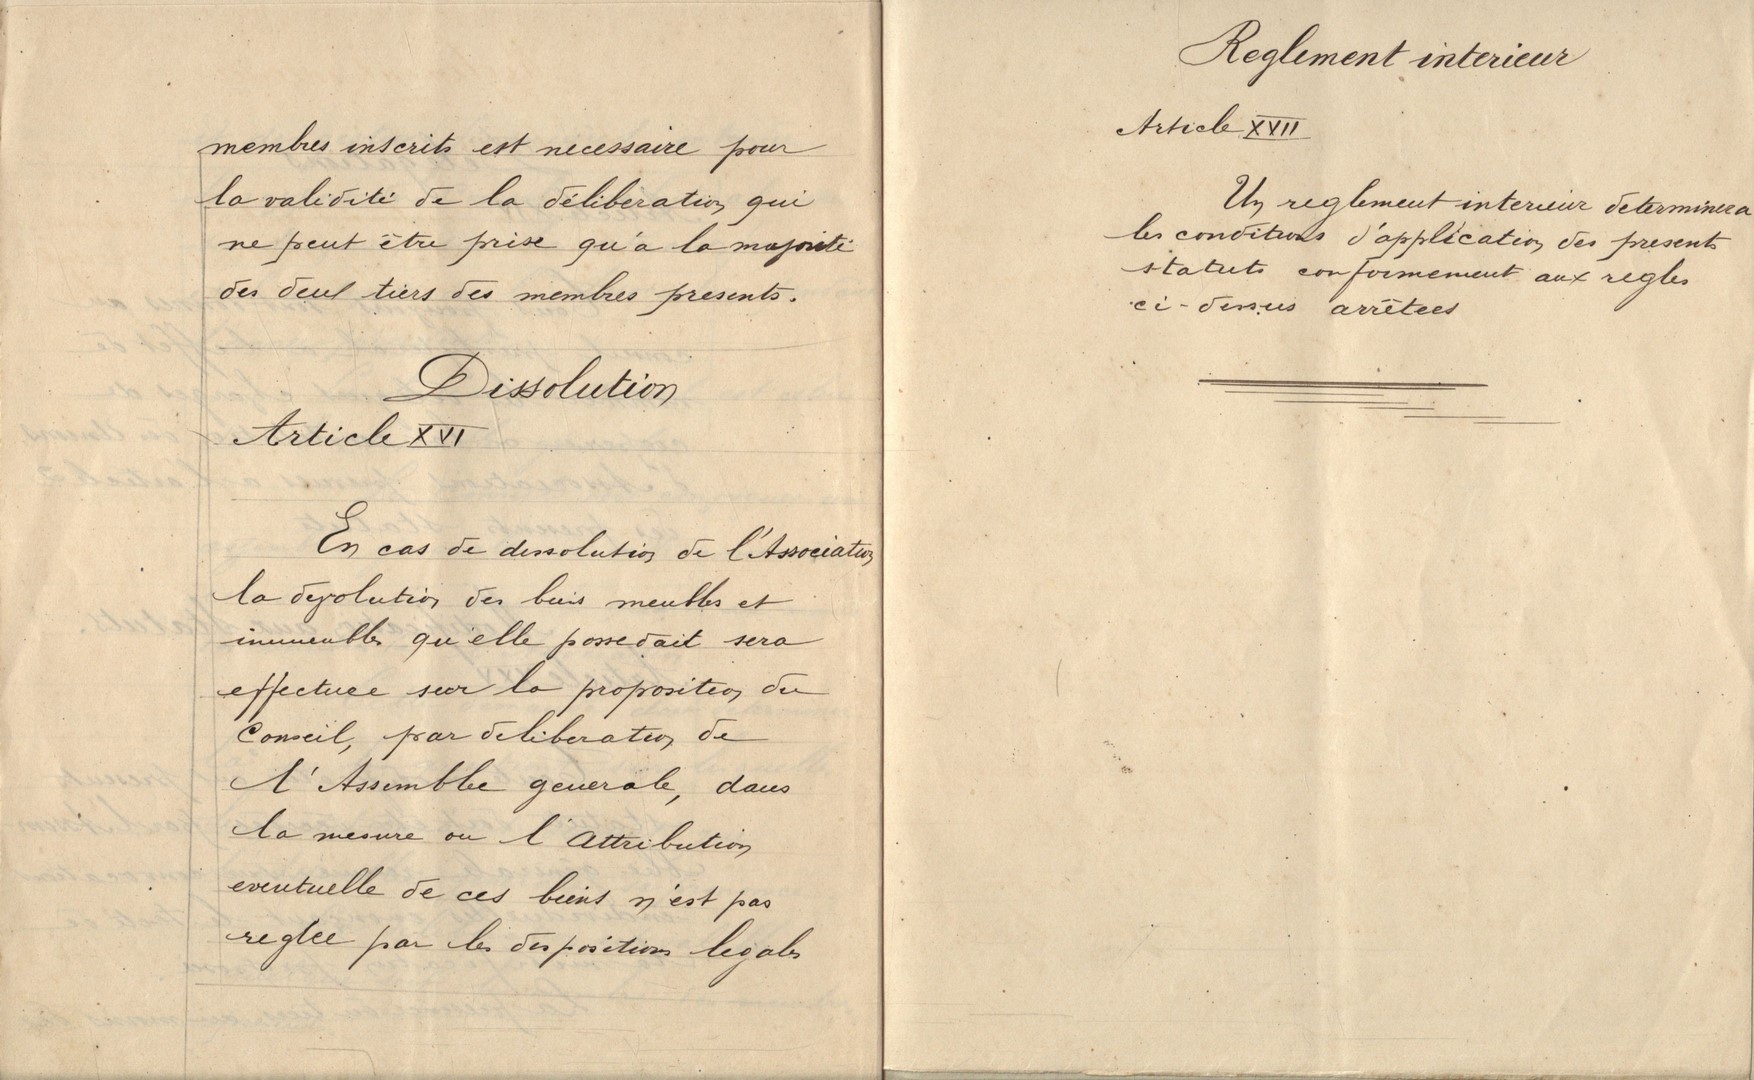 membres inscrits est necessaire pour
la validité de la déliberation qui
ne peut être prise qu'a la majorité
des deux tiers des membres presents.
Dissolution
Article XVI
En cas de dissolution de l'Association
la devolution des biens meubles et
immeubles qu'elle possedait sera
effectuee sur la proposition du
Conseil, par deliberation de
l'Assemblee generale, dans
la mesure ou l'Attribution
eventuelle de ces biens n'est pas
reglee par les dispositions legales
Reglement interieur
Article XVII
Un reglement interieur determinera
les conditions d'application des presents
statuts conformement aux regles
ci-dessus arrêtees